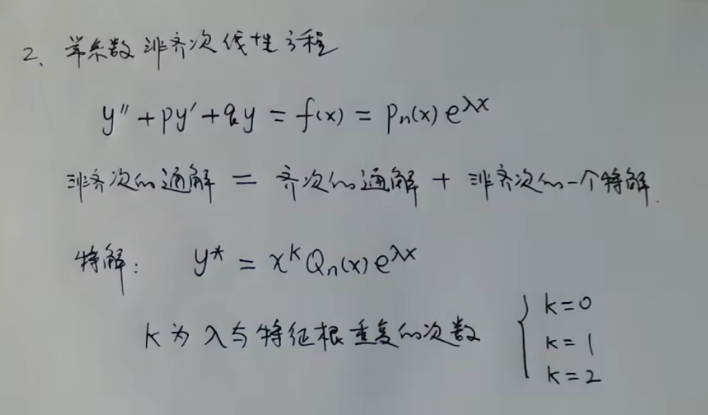 2、常系数非齐次线性方程
y″+py′+qy=f(x)=Pn(x)e^λx
非齐次的通解=齐次的通解+非齐次的一个特解.
特解: y*=x^k Qn(x)e^λx
k为λ与特征根重复的次数 { k=0
k=1
k=2